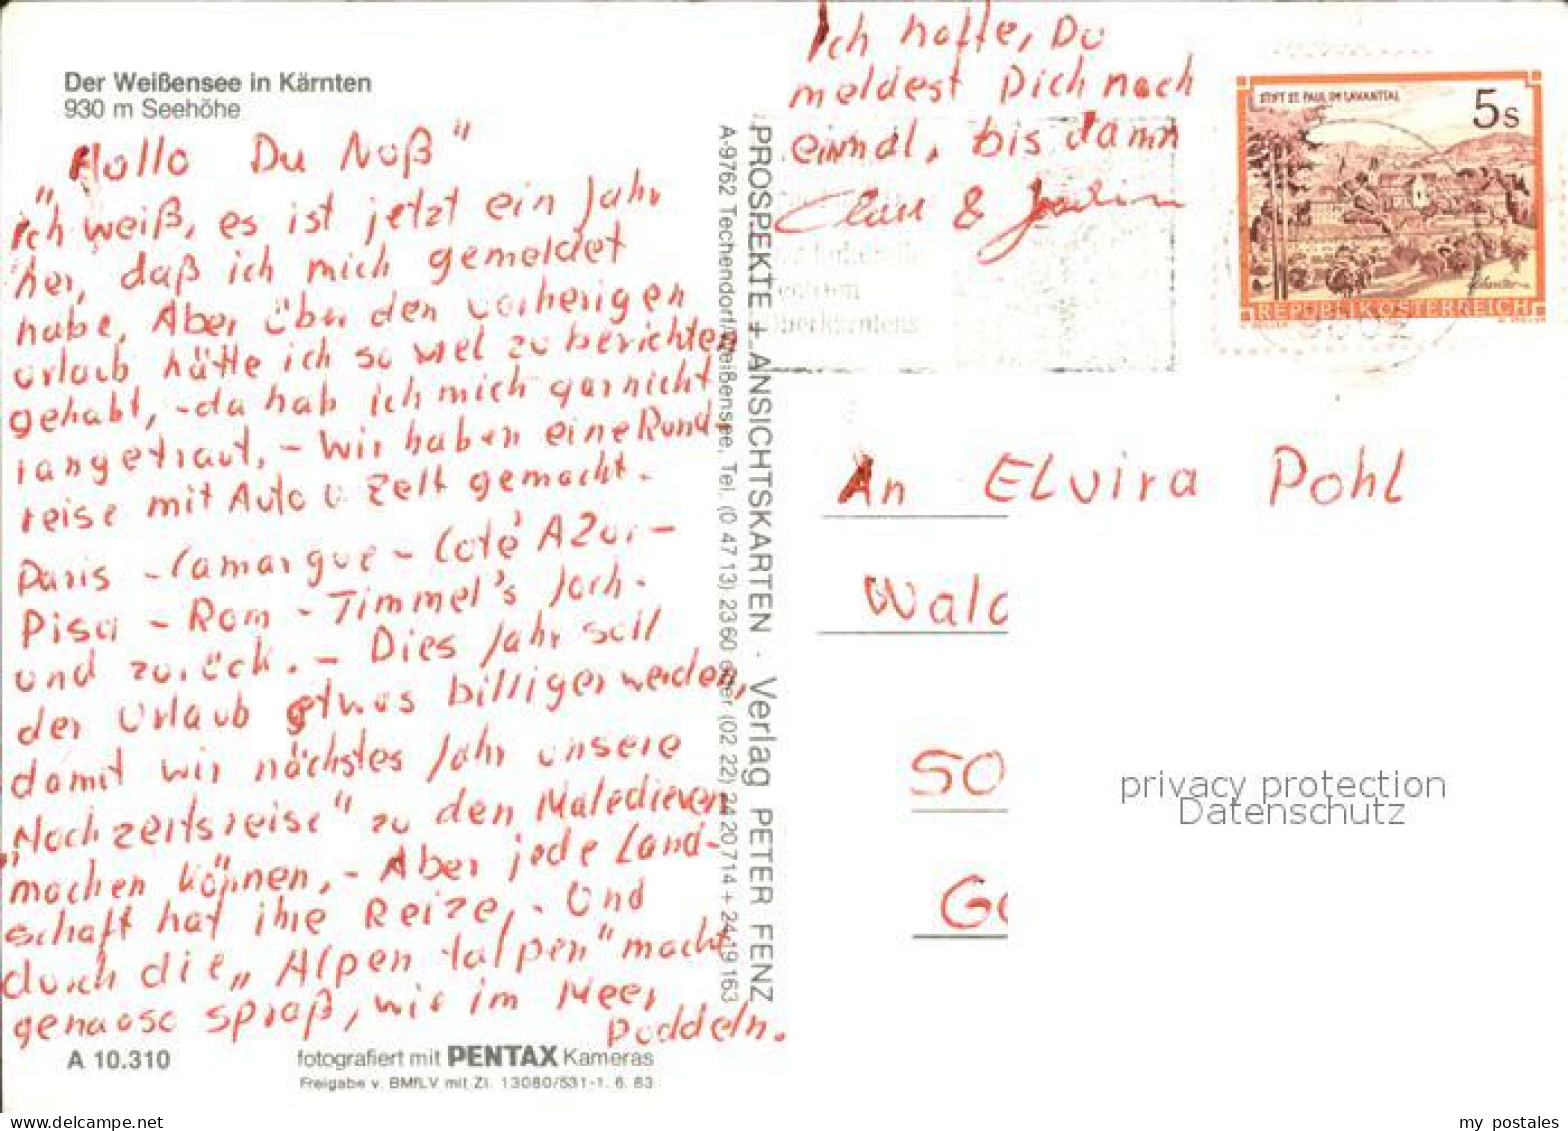 Der Weißensee in Kärnten
930 m Seehöhe
"Hallo Du Nuß"
Ich weiß, es ist jetzt ein Jahr
her, daß ich mich gemeldet
habe, Aber über den vorherigen
Urlaub hätte ich so viel zu berichten
gehabt, - da hab ich mich garnicht
rangetraut, - Wir haben eine Rund-
reise mit Auto u Zelt gemacht.
Paris - Camargue - Coté Azur -
Pisa - Rom - Timmel's Joch -
und zurück. - Dies Jahr soll
der Urlaub etwas billiger werden,
damit wir nächstes Jahr unsere
"Hochzeitsreise" zu den Maledieven
machen können, - Aber jede Land-
schaft hat ihre Reize, - Und
durch die "Alpen talpen" macht
genauso spraß, wie im Meer
Paddeln.
A 10.310
fotografiert mit PENTAX Kameras
Freigabe v. BMfLV mit Zl. 13080/531-1. 6. 83
PROSPEKTE + ANSICHTSKARTEN · Verlag PETER FENZ
A-9762 Techendorf/Weißensee, Tel. (0 47 13) 23 60 oder (02 22) 24 20 714 + 24 19 163
Ich hoffe, Du
meldest Dich noch
einmal, bis dann
&
Oberkärntens
STIFT ST. PAUL IM LAVANTTAL
5 S
REPUBLIK ÖSTERREICH
An Elvira Pohl
Wald
50
Ge
privacy protection
Datenschutz
www.delcampe.net
my_postales